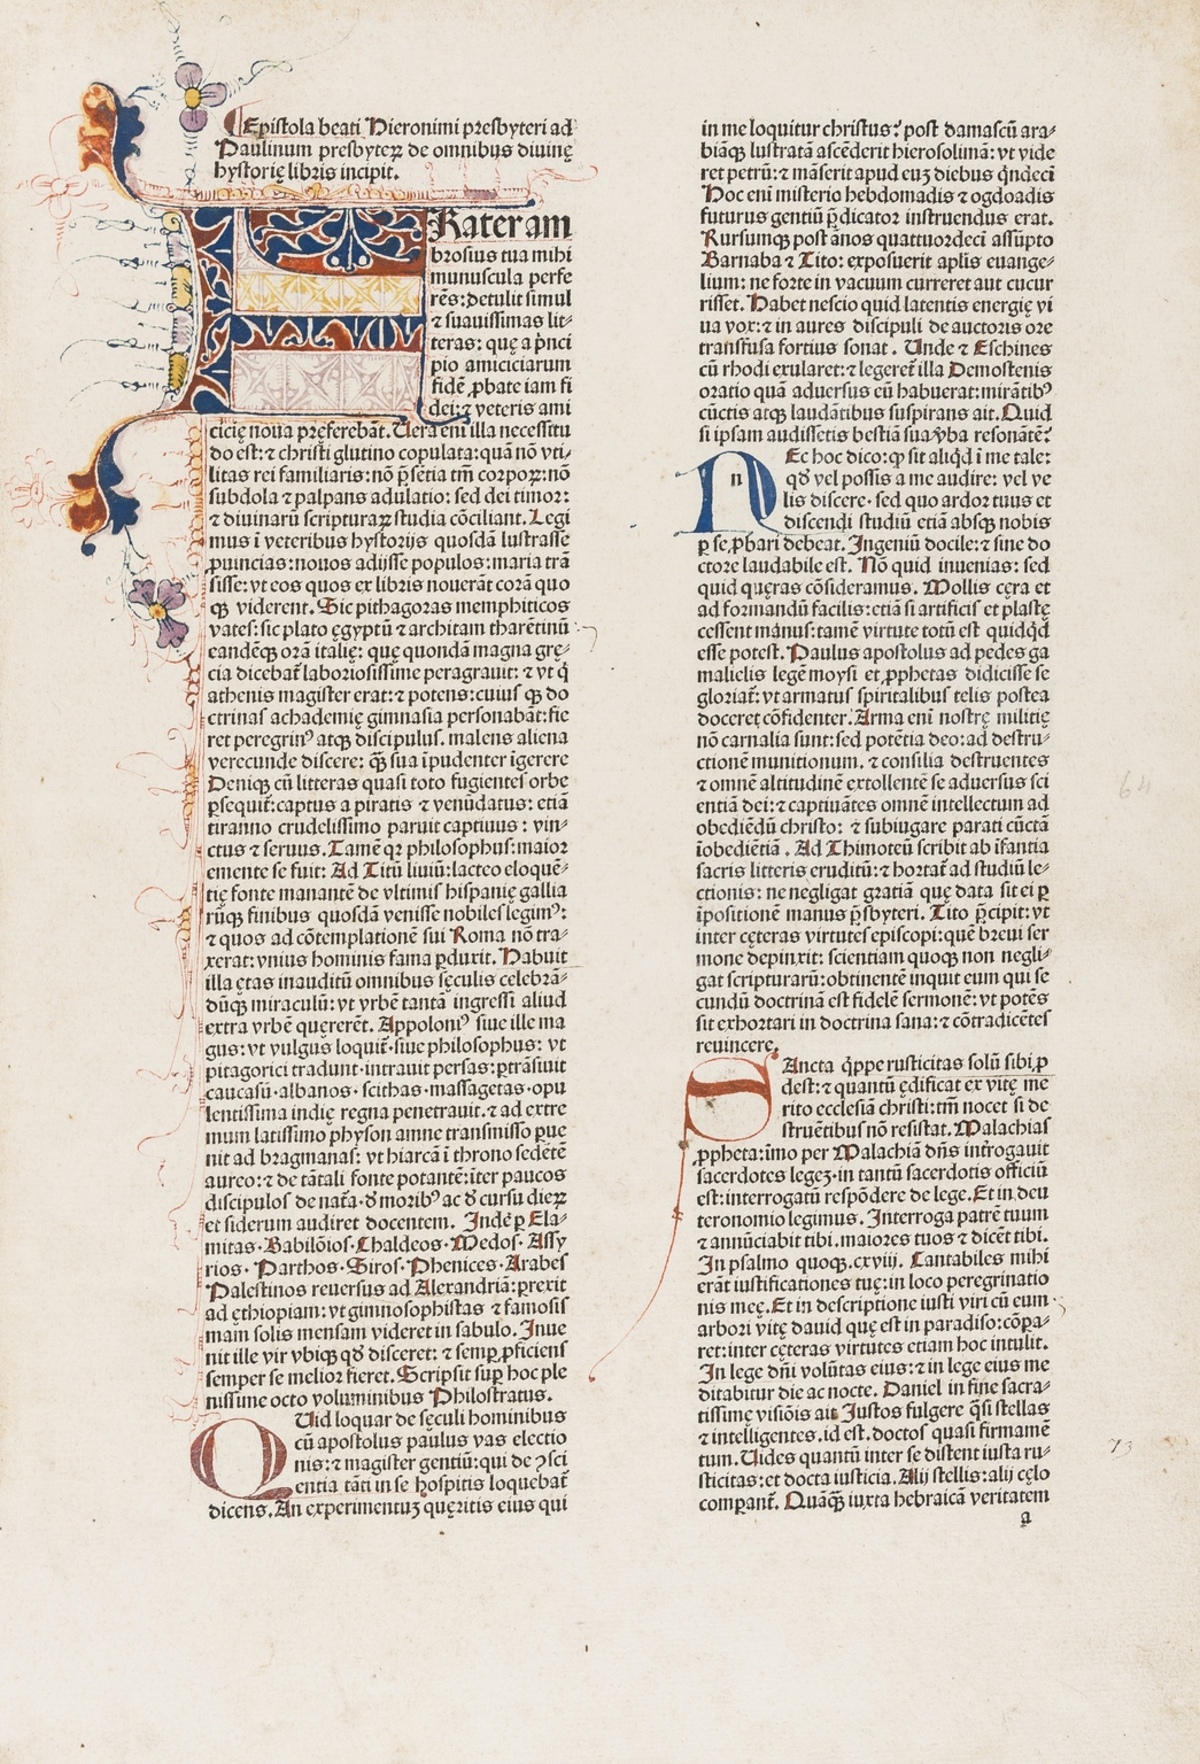 Epistola beati Hieronimi presbyteri ad
Paulinum presbyteꝝ de omnibus diuinę
hystorię libris incipit.
FRater am
brosius tua mihi
munuscula perfe
rēs: detulit simul
⁊ suauissimas lit⸗
teras: quę a p̄nci
pio amiciciarum
fidē ꝓbate iam fi
dei: ⁊ veteris ami
cicię noua pręferebāt. Uera eni illa necessitu
do est: ⁊ christi glutino copulata: quā nō vti⸗
litas rei familiaris: nō p̄sētia tm̄ corpoꝝ: nō
subdola ⁊ palpans adulatio: sed dei timor:
⁊ diuinarū scripturaꝝ studia cōciliant. Legi
mus ī veteribus hystorijs quosdā lustrasse
ꝓuincias: nouos adijsse populos: maria trā
sisse: vt eos quos ex libris nouerāt corā quo
qꝫ viderent. Sic pithagoras memphiticos
vates: sic plato ęgyptū ⁊ architam tharētinū:
eandēqꝫ orā italię: quę quondā magna grę⸗
cia dicebat̄ laboriosissime peragrauit: ⁊ vt q̇
athenis magister erat: ⁊ potens: cuius qꝫ do
ctrinas achademię gimnasia personabāt: fie
ret peregrinꝰ atqꝫ discipulus. malens aliena
verecunde discere: qꝫ̄ sua īpudenter īgerere
Deniqꝫ cū litteras quasi toto fugientes orbe
ꝑsequit̄: captus a piratis ⁊ venūdatus: etiā
tiranno crudelissimo paruit captiuus: vin⸗
ctus ⁊ seruus. Tamē qꝛ philosophus: maior
emente se fuit: Ad Titū liuiū: lacteo eloquē⸗
tię fonte manantē de vltimis hispanię gallia
rūqꝫ finibus quosdā venisse nobiles legimꝰ:
⁊ quos ad cōtemplationē sui Roma nō tra⸗
xerat: vnius hominis fama ꝑduxit. Habuit
illa ętas inauditū omnibus sęculis celebrā⸗
dūqꝫ miraculū: vt vrbē tantā ingressi aliud
extra vrbē quęrerēt. Appoloniꝰ siue ille ma
gus: vt vulgus loquit̄· siue philosophus: vt
pitagorici tradunt· intrauit persas: ꝑtrāsiuit
caucasū· albanos· scithas· massagetas· opu
lentissima indię regna penetrauit. ⁊ ad extre
mum latissimo physon amne transmisso ꝑue
nit ad bragmanas: vt hiarcā ī throno sedētē
aureo: ⁊ de tātali fonte potantē: īter paucos
discipulos de nat̄a· ꝺ moribꝰ ac ꝺ cursu dieꝝ
et siderum audiret docentem. Indē ꝑ Ela⸗
mitas· Babilōios· Chaldeos· Medos· Assy
rios· Parthos· Siros· Phenices· Arabes
Palestinos reuersus ad Alexandriā: ꝑrexit
ad ęthiopiam: vt gimnosophistas ⁊ famosis
mam solis mensam videret in sabulo. Inue
nit ille vir vbiqꝫ qꝺ disceret: ⁊ semꝑ ꝓficiens
semper se melior fieret. Scripsit suꝑ hoc ple
nissime octo voluminibus Philostratus.
QUid loquar de sęculi hominibus
cū apostolus paulus vas electio
nis: ⁊ magister gentiū: qui de ꝯsci
entia tāti in se hospitis loquebat̄
dicens. An experimentuꝫ quęritis eius qui
in me loquitur christus? post damascū ara⸗
biāqꝫ lustratā ascēderit hierosolimā: vt vide
ret petrū: ⁊ māserit apud euꝫ diebus q̇ndeci
Hoc eni misterio hebdomadis ⁊ ogdoadis
futurus gentiū p̄dicator instruendus erat.
Rursumqꝫ post ānos quattuordeci assūpto
Barnaba ⁊ Tito: exposuerit aplis euange⸗
lium: ne forte in vacuum curreret aut cucur
risset. Habet nescio quid latentis energię vi
ua vox: ⁊ in aures discipuli de auctoris ore
transfusa fortius sonat. Unde ⁊ Eschines
cū rhodi exularet: ⁊ legeret̄ illa Demostenis
oratio quā aduersus eū habuerat: mirātibꝰ
cūctis atqꝫ laudātibus suspirans ait. Quid
si ipsam audissetis bestiā sua v̄ba resonātē?
n
NEc hoc dico: ꝙ sit aliq̇d ī me tale:
qꝺ vel possis a me audire: vel ve
lis discere· sed quo ardor tuus et
discendi studiū etiā absqꝫ nobis
ꝑ se ꝓbari debeat. Ingeniū docile: ⁊ sine do
ctore laudabile est. Nō quid inuenias: sed
quid quęras cōsideramus. Mollis cęra et
ad formandū facilis: etiā si artificis et plastę
cessent manus: tamē virtute totū est quidq̇d
esse potest. Paulus apostolus ad pedes ga
malielis legē moysi et ꝓphetas didicisse se
gloriat̄: vt armatus spiritalibus telis postea
doceret cōfidenter. Arma eni nostrę militię
nō carnalia sunt: sed potētia deo: ad destru⸗
ctionē munitionum. ⁊ consilia destruentes
⁊ omnē altitudinē extollentē se aduersus sci
entiā dei: ⁊ captiuātes omnē intellectum ad
obediēdū christo: ⁊ subiugare parati cūctā
īobediētiā. Ad Thimoteū scribit ab īfantia
sacris litteris eruditū: ⁊ hortat̄ ad studiū le⸗
ctionis: ne negligat gratiā quę data sit ei ꝑ
īpositionē manus p̄sbyteri. Tito p̄cipit: vt
inter cęteras virtutes episcopi: quē breui ser
mone depinxit: scientiam quoqꝫ non negli⸗
gat scripturarū: obtinentē inquit eum qui se
cundū doctrinā est fidelē sermonē: vt potēs
sit exhortari in doctrina sana: ⁊ cōtradicētes
reuincere.
SAncta q̇ppe rusticitas solū sibi ꝓ
dest: ⁊ quantū ędificat ex vitę me
rito ecclesiā christi: tm̄ nocet si de
struētibus nō resistat. Malachias
ꝓpheta: īmo per Malachiā dn̄s int̄rogauit
sacerdotes legeꝫ· in tantū sacerdotis officiū
est: interrogatū respōdere de lege. Et in deu
teronomio legimus. Interroga patrē tuum
⁊ annūciabit tibi. maiores tuos ⁊ dicēt tibi.
In psalmo quoqꝫ. cxviij. Cantabiles mihi
erāt iustificationes tuę: in loco peregrinatio
nis meę. Et in descriptione iusti viri cū eum
arbori vitę dauid quę est in paradiso: cōpa⸗
ret: inter cęteras virtutes etiam hoc intulit.
In lege dn̄i volūtas eius: ⁊ in lege eius me
ditabitur die ac nocte. Daniel in fine sacra⸗
tissimę visiōis ait Justos fulgere q̄si stellas
⁊ intelligentes. id est. doctos quasi firmamē
tum. Uides quantū inter se distent iusta ru⸗
sticitas: et docta iusticia. Alij stellis: alij cęlo
comꝑant̄. Quāqꝫ̄ iuxta hebraicā veritatem
a
64
73